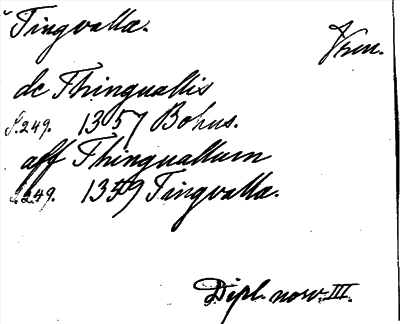 Tingvalla.
Vrm.
de Thinguallis
S.249. 1357 Bohus.
aff Thinguallum
S.249. 1359 Tingvalla.
Dipl. norv. III.